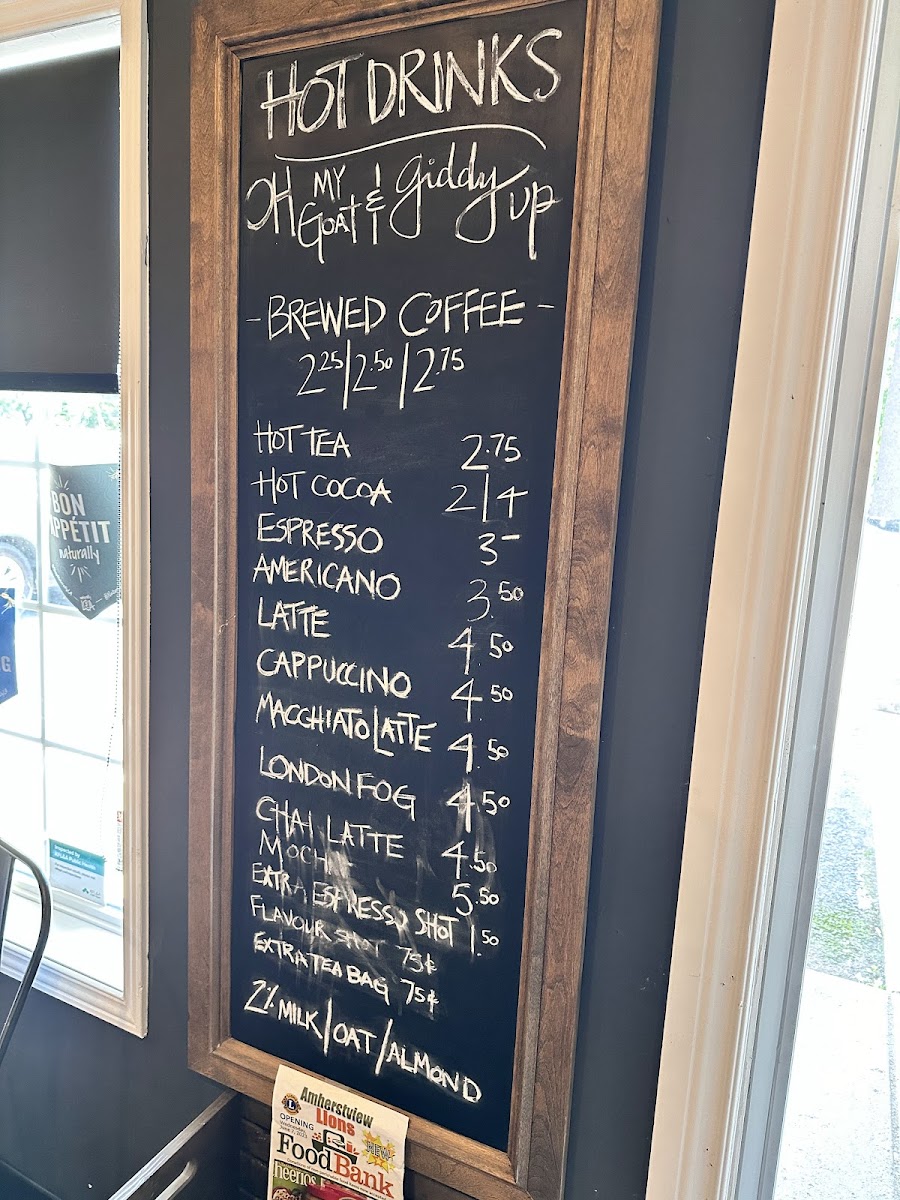 HOT DRINKS
OH MY GOAT & Giddy up
- BREWED COFFEE -
2.25 | 2.50 | 2.75
HOT TEA 2.75
HOT COCOA 2 | 4
ESPRESSO 3-
AMERICANO 3.50
LATTE 4.50
CAPPUCCINO 4.50
MACCHIATO LATTE 4.50
LONDON FOG 4.50
CHAI LATTE 4.50
MOCHA 5.50
EXTRA ESPRESSO SHOT 1.50
FLAVOUR SHOT 75¢
EXTRA TEA BAG 75¢
2% MILK/OAT/ALMOND
BON
APPÉTIT
naturally
G
Inspected by
KFL&A Public Health
Amherstview
Lions
OPENING
NEW
Food Bank
heerios